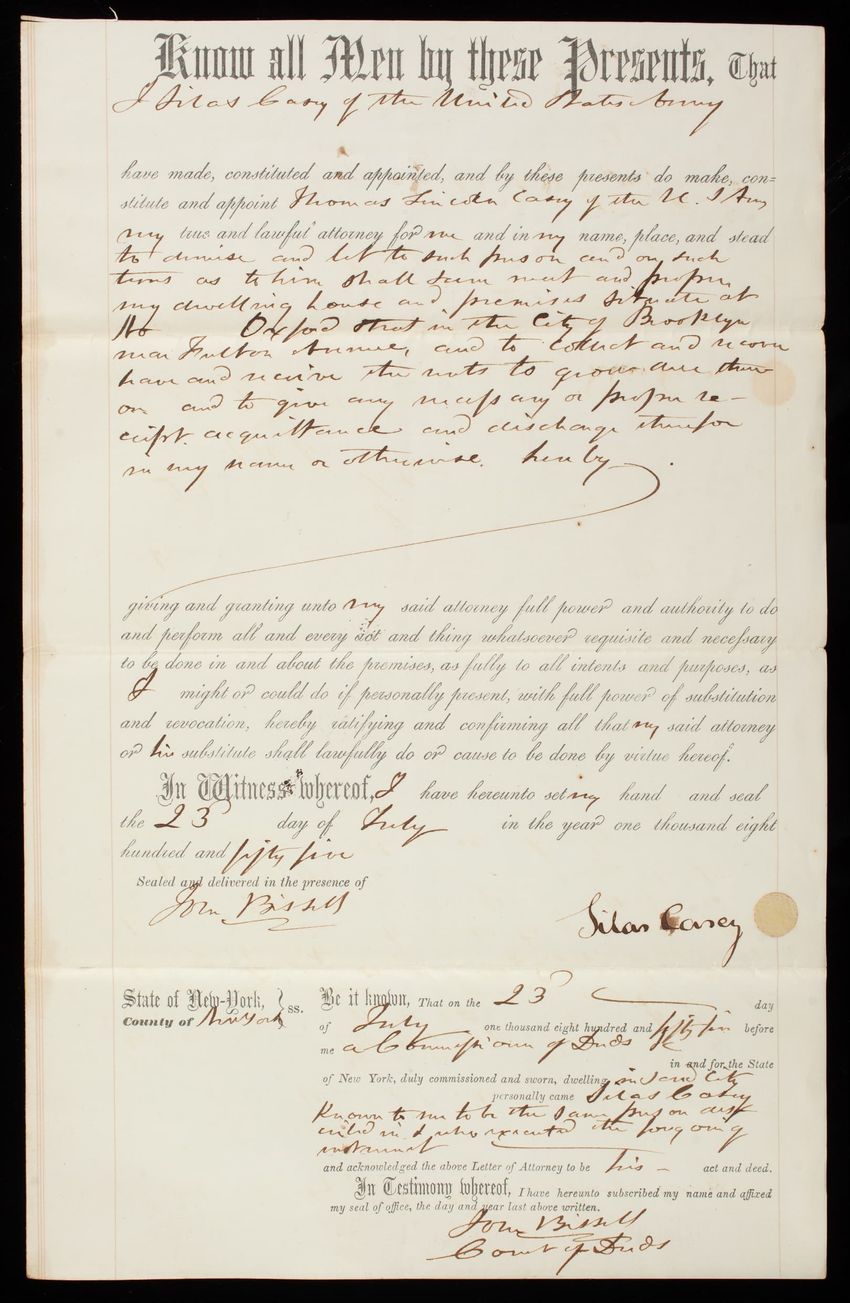 Know all Men by these Presents, That
I Silas Casey of the United States Army
have made, constituted and appointed, and by these presents do make, con=
stitute and appoint Thomas Lincoln Casey of the U. S Army
my true and lawful attorney for me and in my name, place, and stead
to demise and let to such person and on such
terms as to him shall seem meet and proper
my dwelling house and premises situate at
No Oxford Street in the City of Brooklyn
near Fulton Avenue, and to collect and recover
have and receive the rents to grow due there
on and to give any necessary or proper re-
ceipt acquittance and discharge therefor
in my name or otherwise. hereby
giving and granting unto my said attorney full power and authority to do
and perform all and every act and thing whatsoever requisite and necessary
to be done in and about the premises, as fully to all intents and purposes, as
I might or could do if personally present, with full power of substitution
and revocation, hereby ratifying and confirming all that my said attorney
or his substitute shall lawfully do or cause to be done by virtue hereof.
In Witness whereof, I have hereunto set my hand and seal
the 23 day of July in the year one thousand eight
hundred and fifty five
Sealed and delivered in the presence of
John Bissell
Silas Casey
State of New-York, } ss.
County of New York
Be it known, That on the 23 day
of July one thousand eight hundred and fifty five before
me a Commissioner of Deeds &c
in and for the State
of New York, duly commissioned and sworn, dwelling in said City
personally came Silas Casey
Known to me to be the same person des
cribed in & who executed the foregoing
instrument
and acknowledged the above Letter of Attorney to be his - act and deed.
In Testimony whereof, I have hereunto subscribed my name and affixed
my seal of office, the day and year last above written.
John Bissell
Comr of Deeds